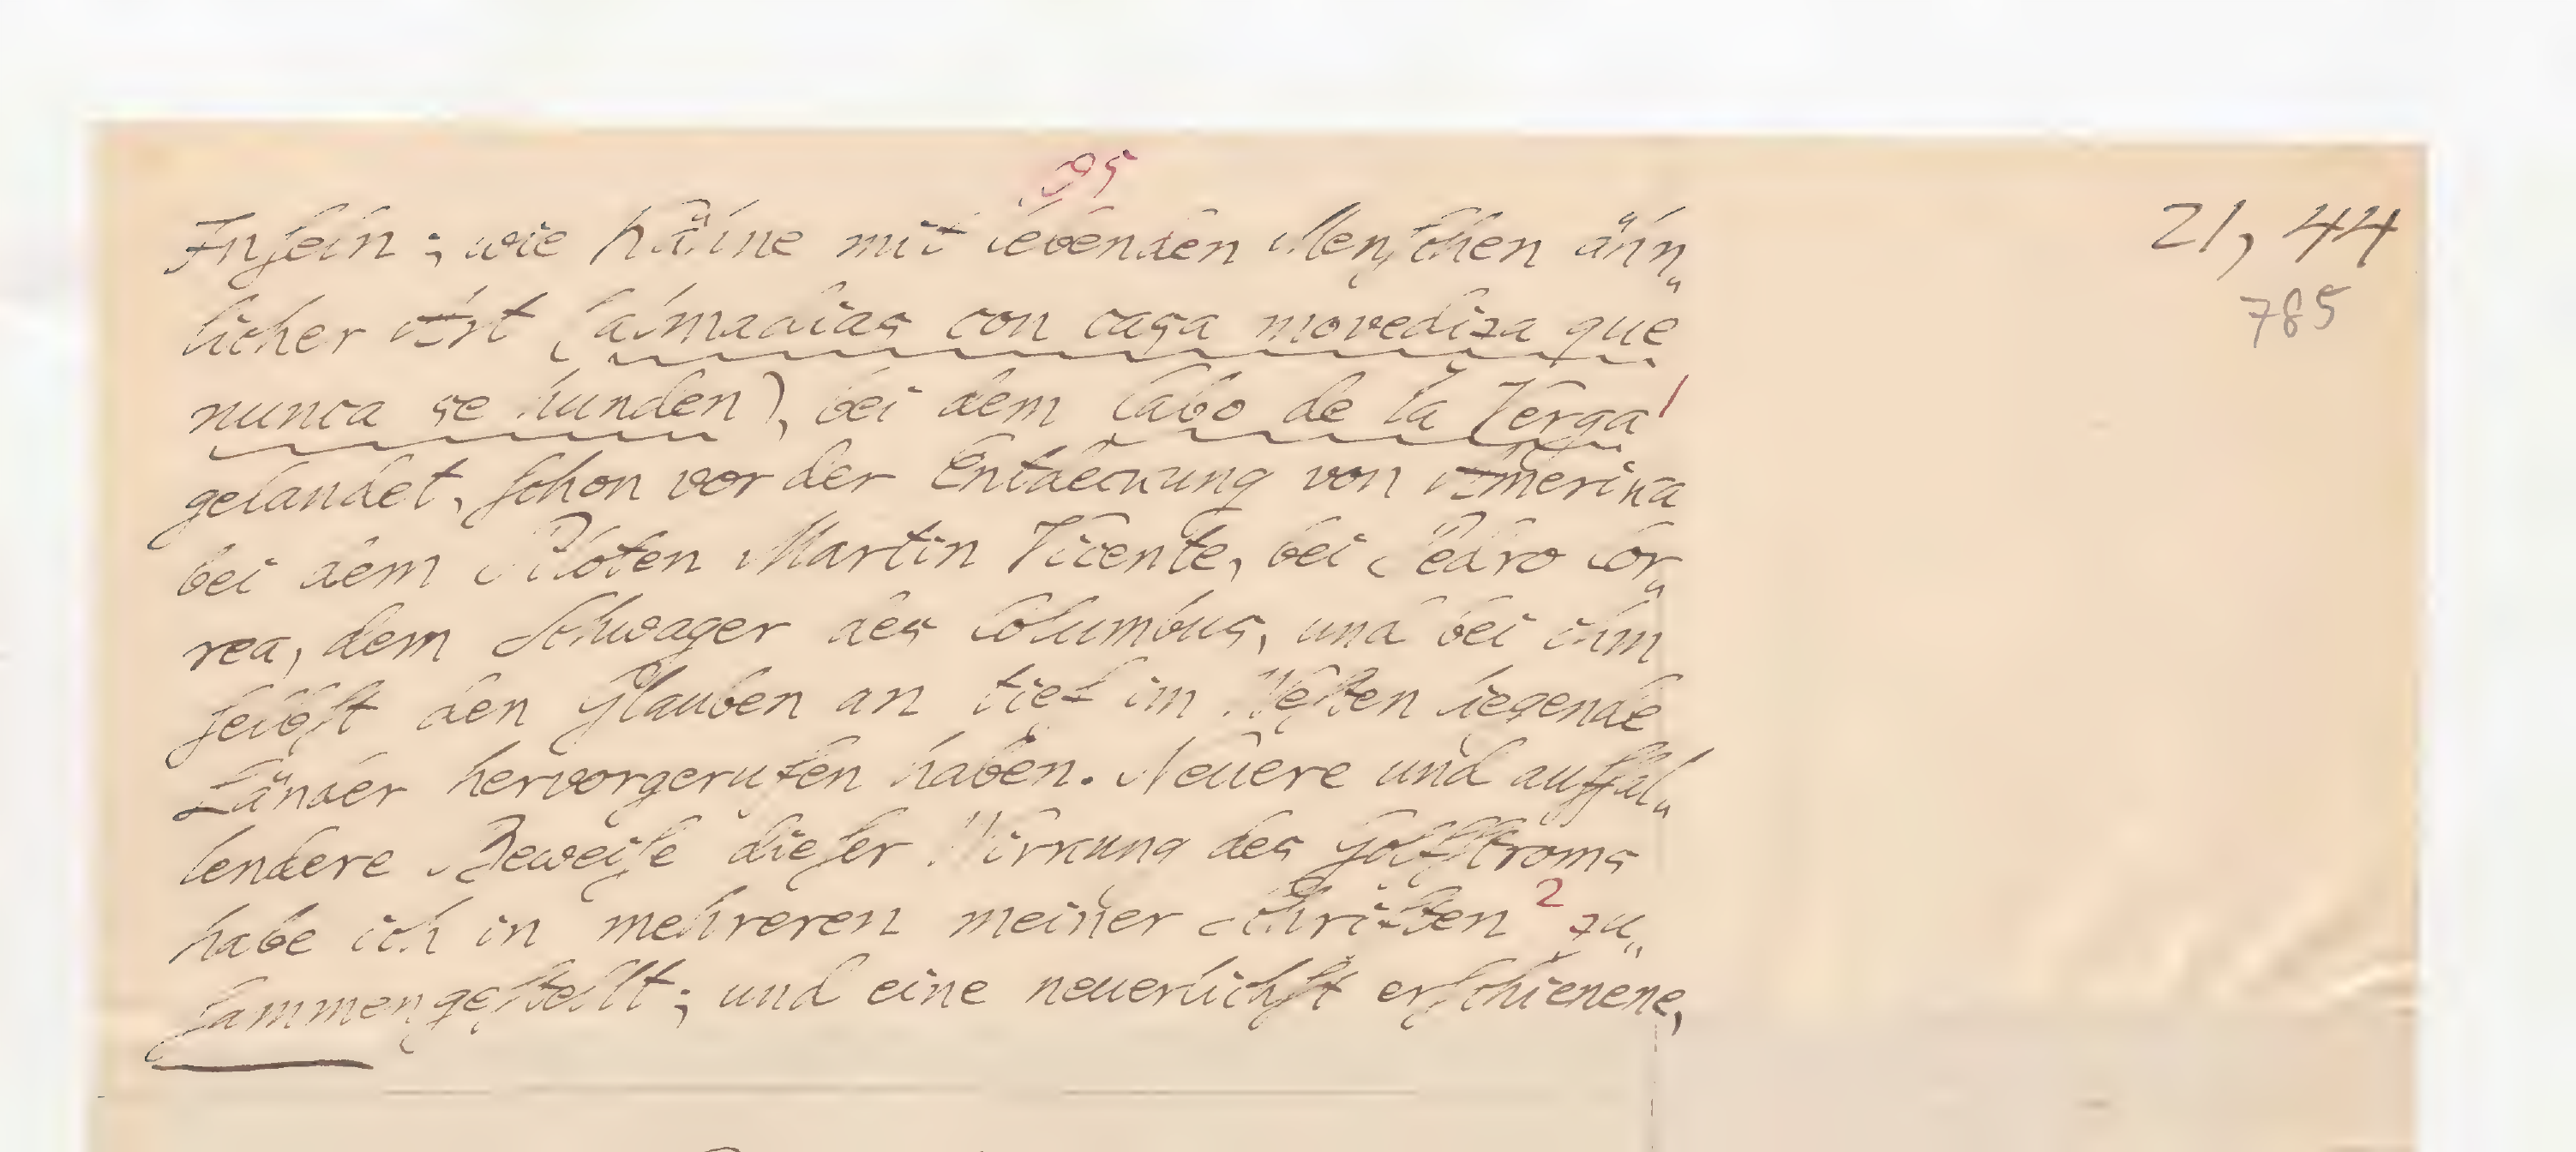 95
21, 44
785
Inseln; wie Kähne mit lebenden Menschen ähn„
licher Art (almadias con casa movediza que
nunca se hunden), bei dem Cabo de la Verga 1
gelandet, schon vor der Entdeckung von Amerika
bei dem Piloten Martin Vicente, bei Pedro Cor„
rea, dem Schwager des Columbus, und bei ihm
selbst den Glauben an tief im Westen liegende
Länder hervorgerufen haben. Neuere und auffal„
lendere Beweise dieser Wirkung des Golfstroms
habe ich in mehreren meiner Schriften 2 zu„
sammengestellt; und eine neuerlichst erschienene,